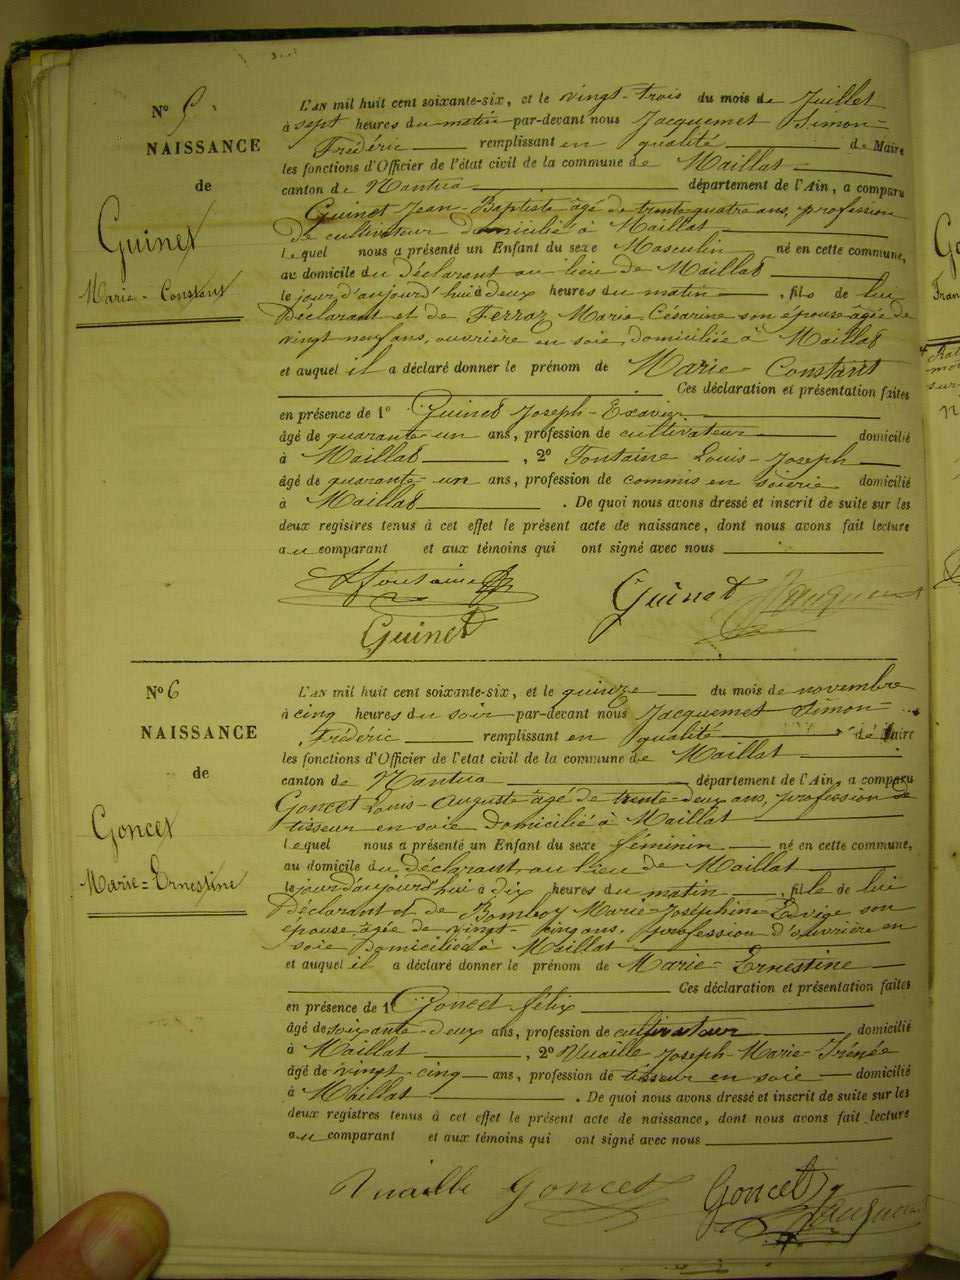 N° 5
NAISSANCE
de
Guinet
Marie-Constant
L'AN mil huit cent soixante-six, et le vingt-trois du mois de Juillet
à sept heures du matin par-devant nous Jacquemet Simon-
Frédéric remplissant en qualité de Maire
les fonctions d'Officier de l'état civil de la commune de Maillat
canton de Nantua département de l'Ain, a comparu
Guinet Jean-Baptiste âgé de trente quatre ans, profession
de cultivateur domicilié à Maillat
Lequel nous a présenté un Enfant du sexe Masculin né en cette commune,
au domicile du déclarant au lieu de Maillat
le jour d'aujourd'hui à deux heures du matin, fils de lui
Déclarant et de Ferroz Marie Césarine son épouse âgée de
vingt neuf ans, ouvrière en soie, domiciliée à Maillat
et auquel il a déclaré donner le prénom de Marie-Constant
Ces déclaration et présentation faites
en présence de 1° Guinet Joseph-Exavier
âgé de quarante-un ans, profession de cultivateur domicilié
à Maillat, 2° Fontaine Louis-Joseph
âgé de quarante-un ans, profession de commis en soierie domicilié
à Maillat. De quoi nous avons dressé et inscrit de suite sur les
deux registres tenus à cet effet le présent acte de naissance, dont nous avons fait lecture
au comparant et aux témoins qui ont signé avec nous
Fontaine Guinet Jacquemet
Guinet
N° 6
NAISSANCE
de
Goncet
Marie=Ernestine
L'AN mil huit cent soixante-six, et le quinze du mois de novembre
à cinq heures du soir par-devant nous Jacquemet Simon-
Fréderic remplissant en qualité de Maire
les fonctions d'Officier de l'état civil de la commune de Maillat
canton de Nantua département de l'Ain, a comparu
Goncet Louis-Auguste âgé de trente-deux ans, profession de
tisseur en soie domicilié à Maillat
Lequel nous a présenté un Enfant du sexe féminin né en cette commune,
au domicile du déclarant au lieu de Maillat
le jour d'aujourd'hui à dix heures du matin, fille de lui
Déclarant et de Bomboy Marie-Joséphine Edvige son
épouse âgée de vingt-cinq ans, profession d'ouvrière en
soie Domiciliée à Maillat
et auquel il a déclaré donner le prénom de Marie=Ernestine
Ces déclaration et présentation faites
en présence de 1° Goncet félix
âgé de soixante-deux ans, profession de cultivateur domicilié
à Maillat, 2° Vuaille Joseph-Marie-Irénée
âgé de vingt-cinq ans, profession de tisseur en soie domicilié
à Maillat. De quoi nous avons dressé et inscrit de suite sur les
deux registres tenus à cet effet le présent acte de naissance, dont nous avons fait lecture
au comparant et aux témoins qui ont signé avec nous
Vuaille Goncet Goncet Jacquemet